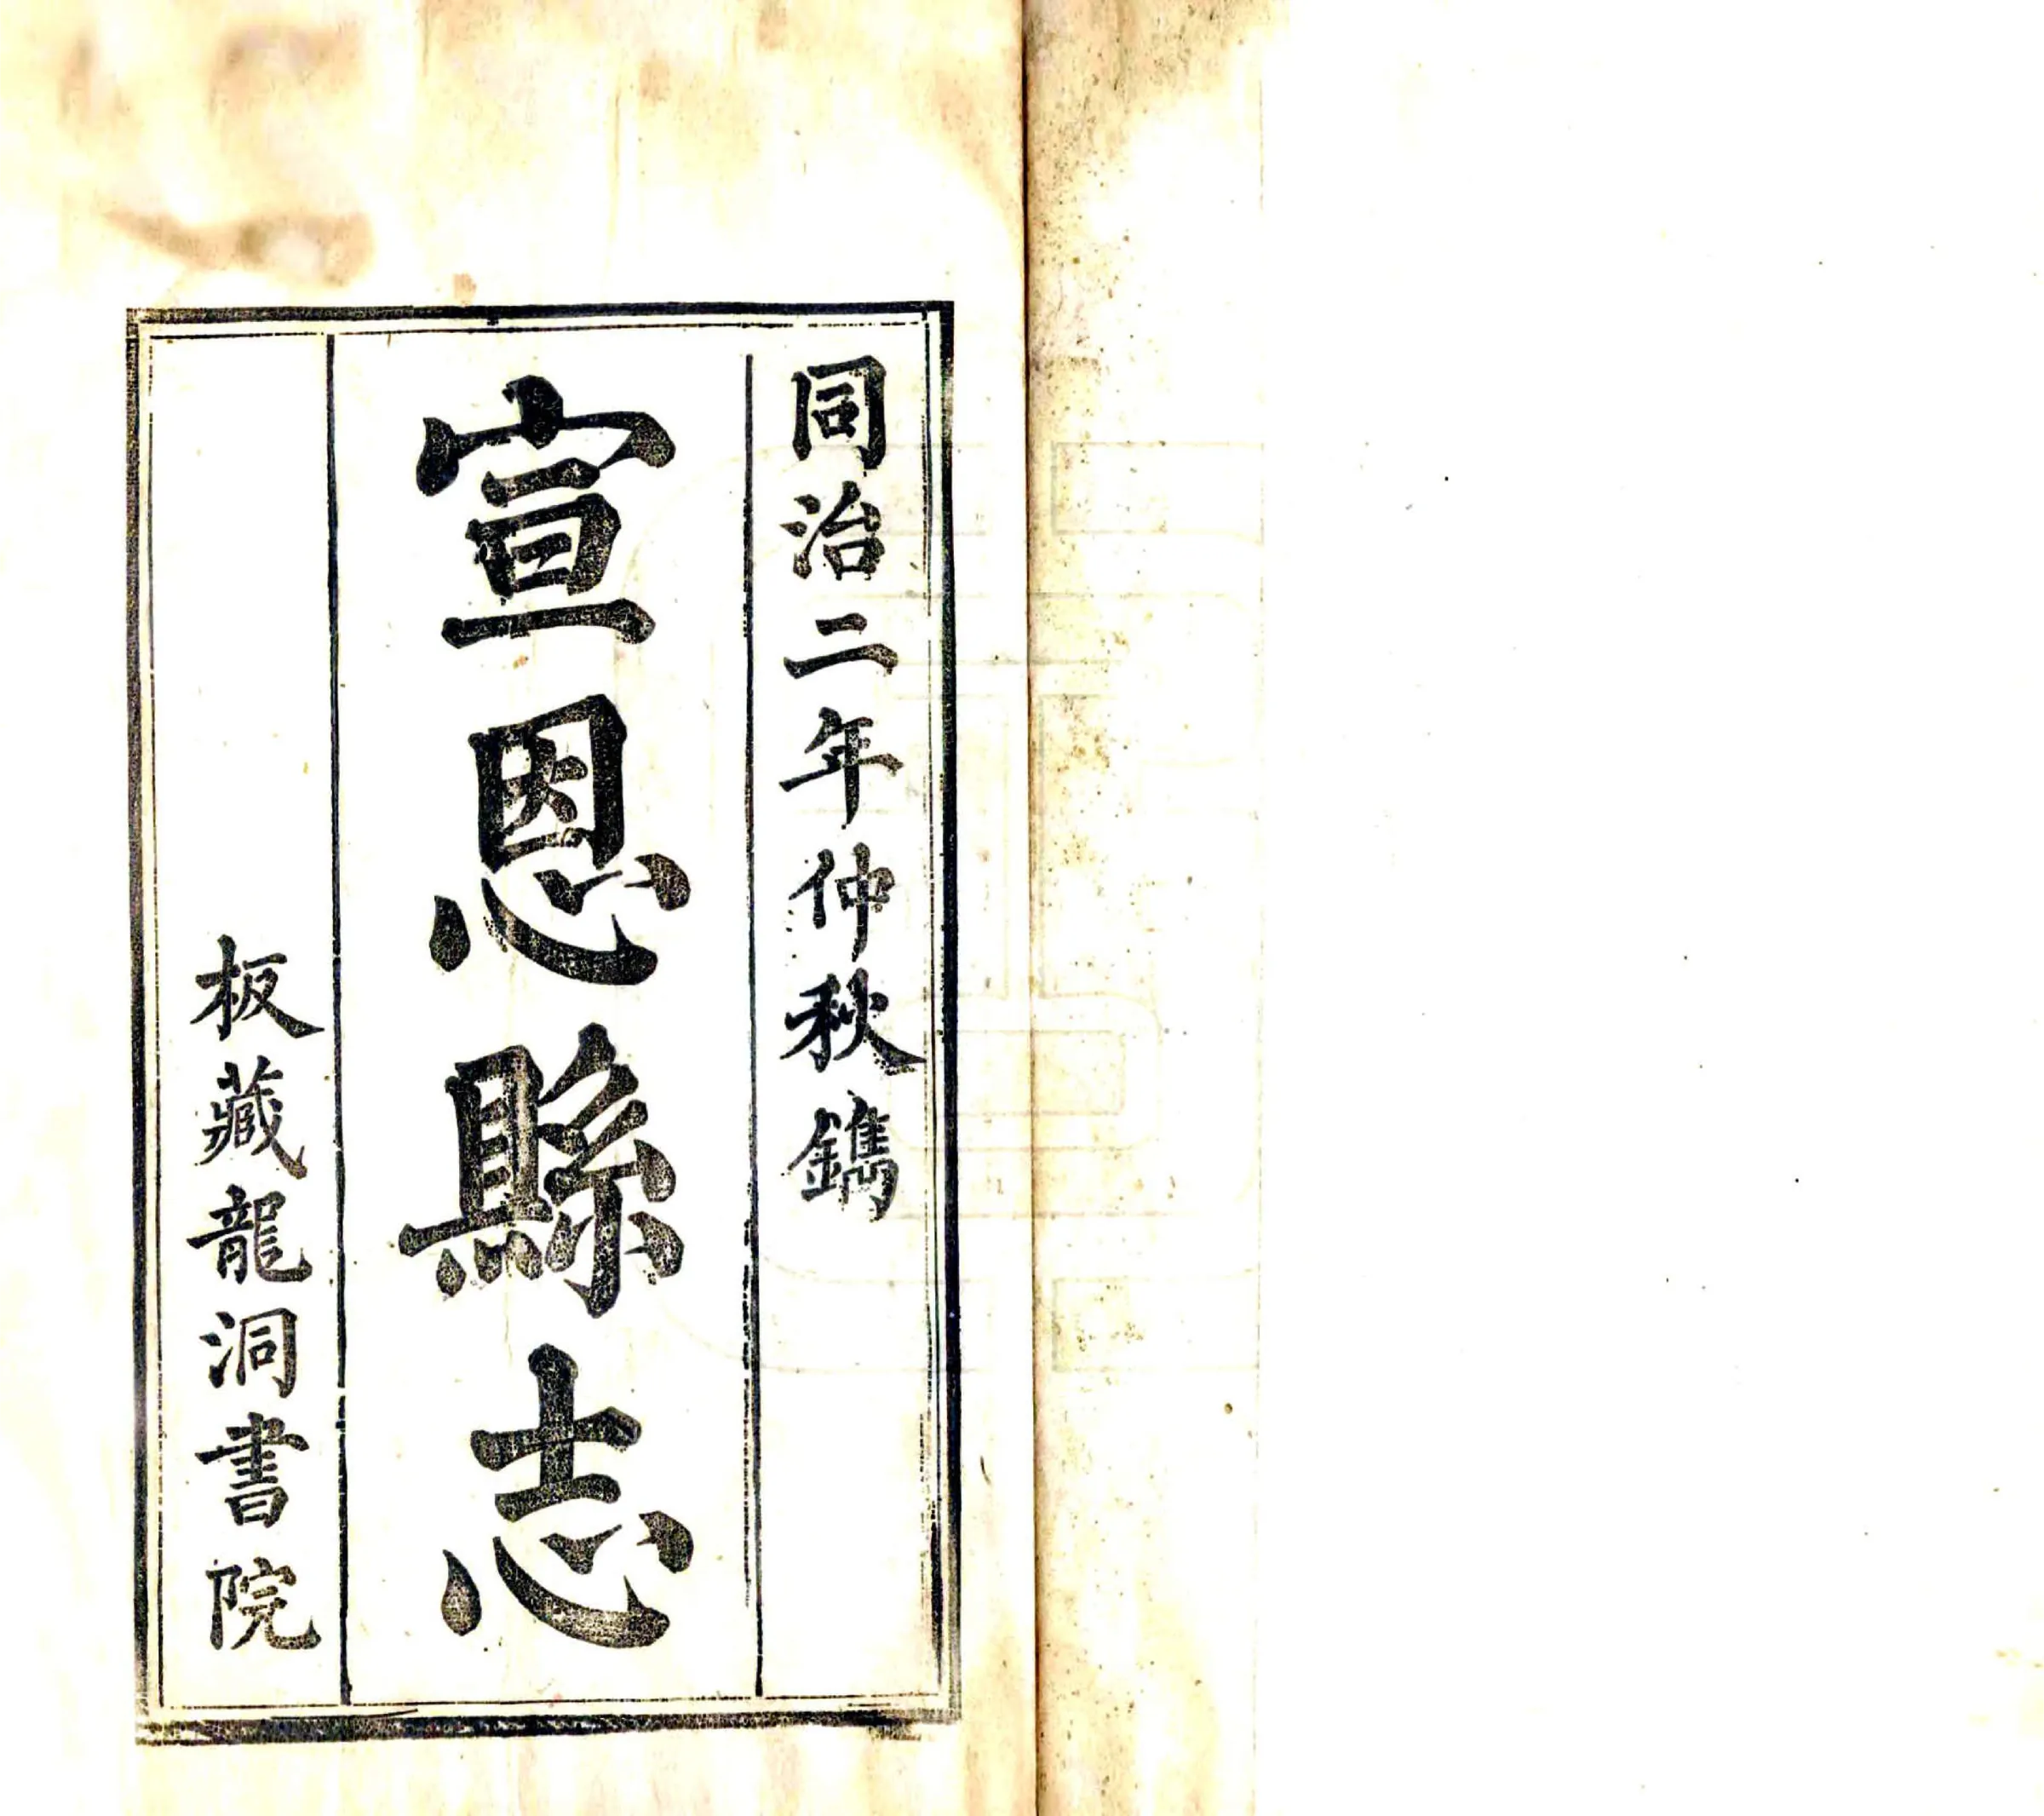 同治二年仲秋鐫
宣恩縣志
板藏龍洞書院